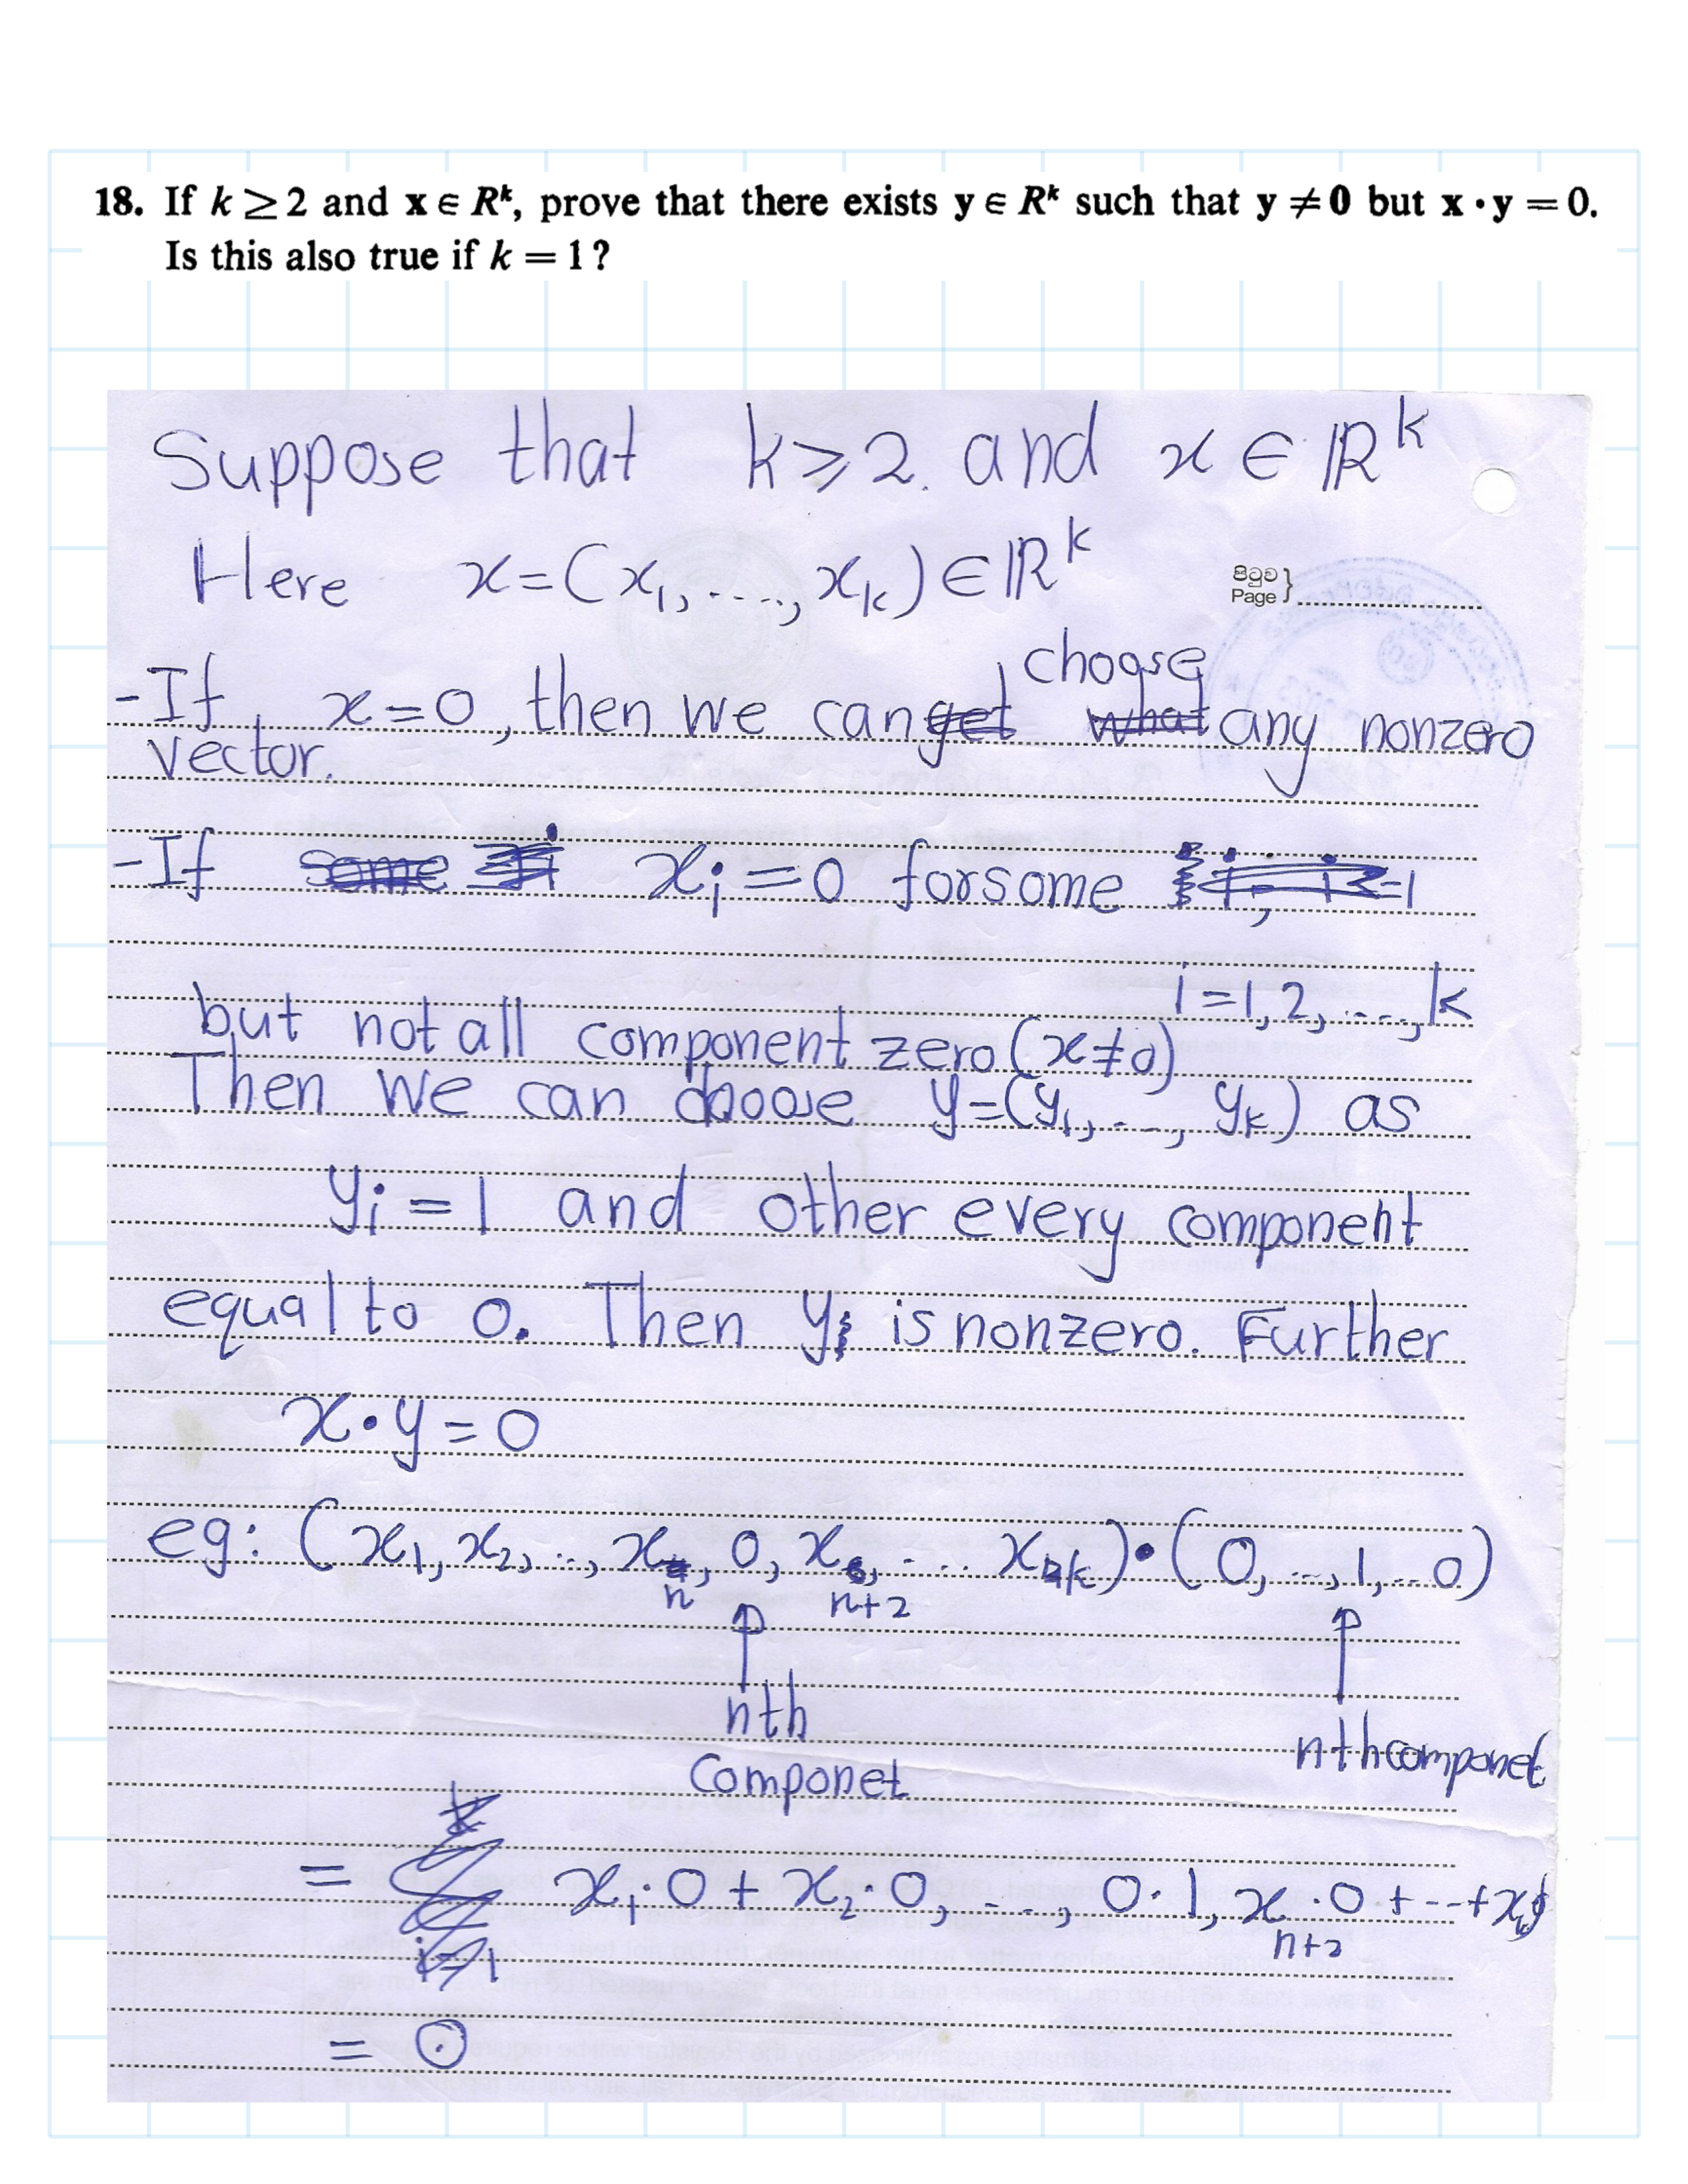 18. If k ≥ 2 and x ∈ Rᵏ, prove that there exists y ∈ Rᵏ such that y ≠ 0 but x • y = 0.
Is this also true if k = 1?
Suppose that k ≥ 2. and x ∈ ℝᵏ
Here x = (x₁, ...., xₖ) ∈ ℝᵏ
පිටුව
Page
choose
- If x = 0, then we can get what any nonzero
vector.
- If some xᵢ = 0 for some
i = 1, 2, ...., k
but not all component zero (x ≠ 0)
Then we can choose y = (y₁, ..., yₖ) as
yᵢ = 1 and other every component
equal to 0. Then y is nonzero. Further
x • y = 0
eg: (x₁, x₂, .., xₙ, 0, xₙ₊₂, .... xₖ) • (0, ..., 1, .. 0)
nth
nth componet
Componet
= x₁ · 0 + x₂ · 0, ...., 0 · 1, xₙ₊₂ · 0 + -- + xₖ
i = 1
= 0